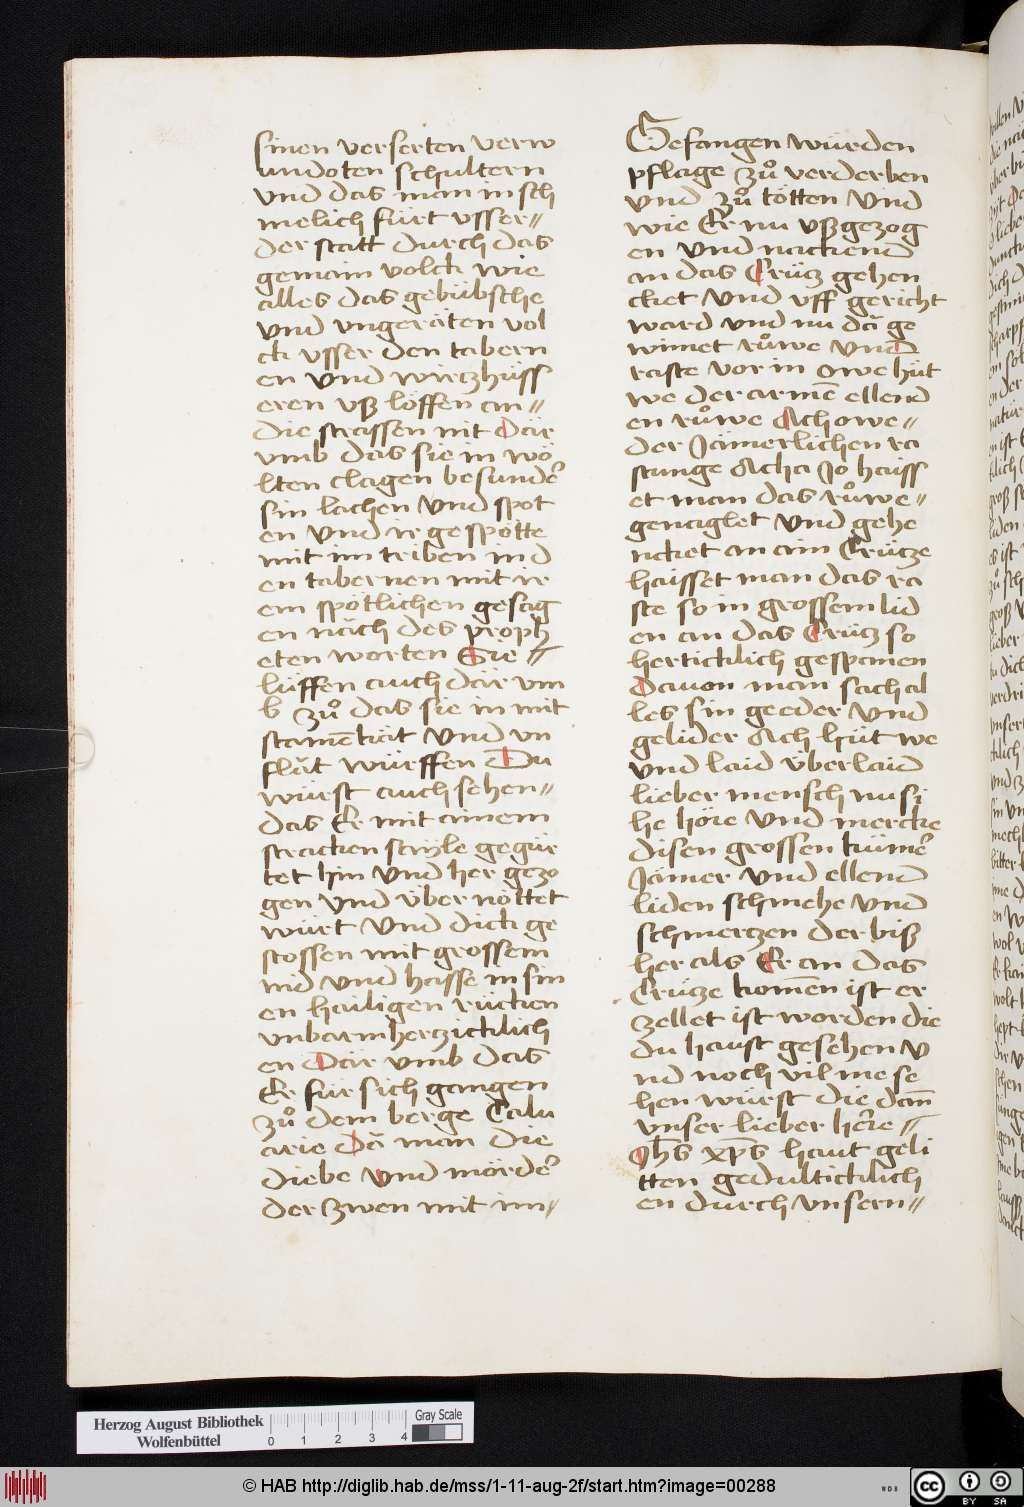 sinen verserten verw
undoten schultern
vnd das man in sch
melich fürt vsser〃
der statt durch das
gemain volck wie
alles das gebübsche
vnd vngeräten vol
ck vsser den tabern
en vnd wirtzhüss
eren vß löffen an〃
die strassen nit Där
vmb das sie in wö
lten clagen besunder̄
sin lachen vnd spot
en vnd ir gespötte
mit im triben in d
en tabernen mit ir
em spötlichen gesäg
en näch des proph
eten worten Sie〃
lüffen auch där vm
b zů das sie in mit
stamē kät vnd vn
flät würffen Du
würst auch sehen〃
das Er mit ainem
stracken stryle gegür
tet hin vnd her gezo
gen vnd über nöttet
würt vnd dick ge
stossen mit grossem
nid vnd hasse in sin
en hailigen rücken
vnbarmherzicklich
en Där vmb das
Er für sich gangen
zů dem berge Calu
arie Dä man die
diebe vnd mörder̄
der zwen mit im〃
Gefangen würden
pflage zů verderben
vnd zů tötten Vnd
wie Er nu vßgezog
en vnd nackend
an das Crütz gehen
cket vnd vff gericht
ward vnd nu dä ge
winnet růwe vnd
raste vor in Owe hüt
we der armē ellend
en růwe Ach owe〃
der Jämerlichen ra
stunge Acha Jo haiss
et man das růwe〃
genaglet vnd gehe
ncket an ain Crütze
haisset man das ra
ste so in grossem lid
en an das Crütz so
herticklich gespanen
Dauon man sach al
les sin geeder vnd
gelider Ach hüt we
vnd laid über laid
lieber mensch nu si
he höre vnd mercke
disen grossen kümer̄
Jämer vnd ellend
liden schmehe vnd
schmertzen der biß
her als Er an das
Crütze komen ist er
zellet ist worden die
du haust gesehen v
nd noch vil me se
hen würst die dan̄
vnser lieber her̄re〃
Jh̄s xp̄s haut geli
tten gedulticklich
en durch vnsern〃
Herzog August Bibliothek
Wolfenbüttel
0 1 2 3 4
Gray Scale
© HAB http://diglib.hab.de/mss/1-11-aug-2f/start.htm?image=00288
WDB
cc BY SA